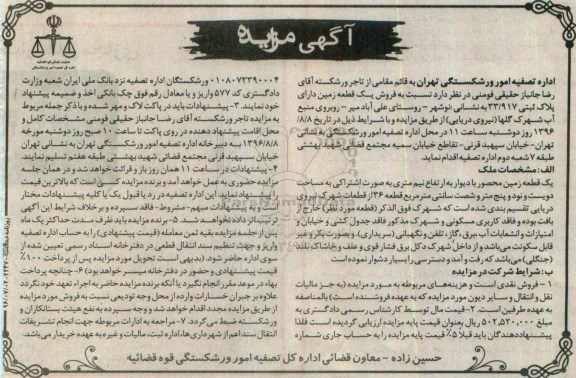 آگهی مزایده
اداره تصفیه امور ورشکستگی تهران به قائم مقامی از تاجر ورشکسته آقای
رضا جانباز حقیقی فومنی در نظر دارد نسبت به فروش یک قطعه زمین دارای
پلاک ثبتی ۳۳/۹۱۷ به نشانی: نوشهر - روستای علی آباد میر - روبروی منبع
آب شهرک گلها (نیروی دریایی) از طریق مزایده و با شرایط ذیل در تاریخ ۸/۸/
۱۳۹۶ روز دوشنبه ساعت ۱۱ در محل اداره تصفیه امور ورشکستگی به نشانی
تهران- خیابان سپهبد قرنی- تقاطع خیابان سمیه مجتمع قضائی شهید بهشتی
طبقه ۷ شعبه دوم اداره تصفیه اقدام نماید.
الف: مشخصات ملک
یک قطعه زمین محصور با دیوار به ارتفاع نیم متری به صورت اشتراکی به مساحت
دویست و نود و پنج متر و شصت سانتی مترمربع قطعه ۳۶ از قطعات شهرک نیروی
دریایی تقسیم بندی شده است که شهرک فوق الذکر (قطعه مورد نظر) خارج از
بافت بوده و فاقد کاربری مسکونی و شهرک مذکور فاقد جدول کشی و خیابان و
امتیازات و انشعابات آب، برق، گاز، تلفن و نگهبانی (سرپداری)، و بصورت بکر و غیر
قابل سکونت می‌باشد و از داخل شهرک دکل برق فشار قوی و علف و خاشاک بلند
(جنگلی) می‌باشد که رفت و آمد و دسترسی را بسیار دشوار نموده است
ب: شرایط شرکت در مزایده
۱ - فروش نقدی است و هزینه‌های مربوطه به مورد مزایده (به جز مالیات
نقل و انتقال و سایر دیون مورد مزایده که به عهده فروشنده است) بالمناصفه
به عهده طرفین است. ۲- قیمت مال توسط کارشناس رسمی دادگستری به
مبلغ ۵۰۲,۵۲۰,۰۰۰ ریال بعنوان قیمت پایه مزایده ارزیابی گردیده است فلذا
پیشنهاددهندگان باید قبلا ۵٪ قیمت پایه مزایده را به حساب جاری شماره
۰۱۰۸۰۷۳۳۹۰۰۰۴ ورشکستگان اداره تصفیه نزد بانک ملی ایران شعبه وزارت
دادگستری کد ۵۷۷ واریز و یا معادل رقم فوق چک بانکی اخذ و ضمیمه پیشنهاد
خود نمایند. ۳- پیشنهادات باید در پاکت لاک و مهر شده و با ذکر جمله مربوط
به مزایده تاجر ورشکسته آقای رضا جانباز حقیقی فومنی مشخصات کامل و
محل اقامت پیشنهاد دهنده در روی پاکت تا ساعت ۱۰ صبح روز دوشنبه مورخه
۱۳۹۶/۸/۸ به دبیرخانه اداره تصفیه امور ورشکستگی تهران به نشانی تهران
خیابان سپهبد قرنی مجتمع قضائی شهید بهشتی طبقه هفتم تسلیم نمایند.
۴- پیشنهادات در ساعت ۱۱ همان روز باز و قرائت خواهد شد و در همان جلسه
مزایده حضوری به عمل خواهد آمد و برنده مزایده کسی است که بالاترین قیمت
را پیشنهاد نماید. این اداره تصفیه در رد یا قبول یک یا کلیه پیشنهادات مختار
است و به پیشنهادات مبهم- مشروط- فاقد سپرده و برخلاف شرایط این آگهی
ترتیب اثر داده نخواهد شد. ۵- برنده مزایده باید ظرف مدت حداکثر یک ماه
پس از جلسه مزایده بقیه ثمن معامله (قیمت پیشنهادی) را به حساب اداره تصفیه
واریز و جهت تنظیم سند انتقال قطعی در دفترخانه اسناد رسمی تعیین شده از
سوی اداره حاضر شود. (بدیهی است تحویل مورد مزایده پس از پرداخت ۱۰۰٪
قیمت پیشنهادی و حضور در دفترخانه میسر خواهد بود) ۶- چنانچه پرداخت
بهاء در موعد مقرر انجام نگیرد یا آنکه برنده مزایده حاضر به اجراء تعهد خود نگردد
علاوه بر جبران خسارات وارده از محل وجه تودیعی نسبت به فروش مورد مزایده
از طریق مزایده مجدد اقدام خواهد شد و وجه سپرده به نفع هیئت بستانکاران و
ورشکسته ضبط می گردد. ۷- مراجعه به ادارات مربوطه جهت انجام تشریفات
انتقال سند اعم از شهرداری ها، اداره ثبت، مالیات و غیره به عهده خریدار می‌باشد.
حسین زاده - معاون قضائی اداره کل تصفیه امور ورشکستگی قوه قضائیه